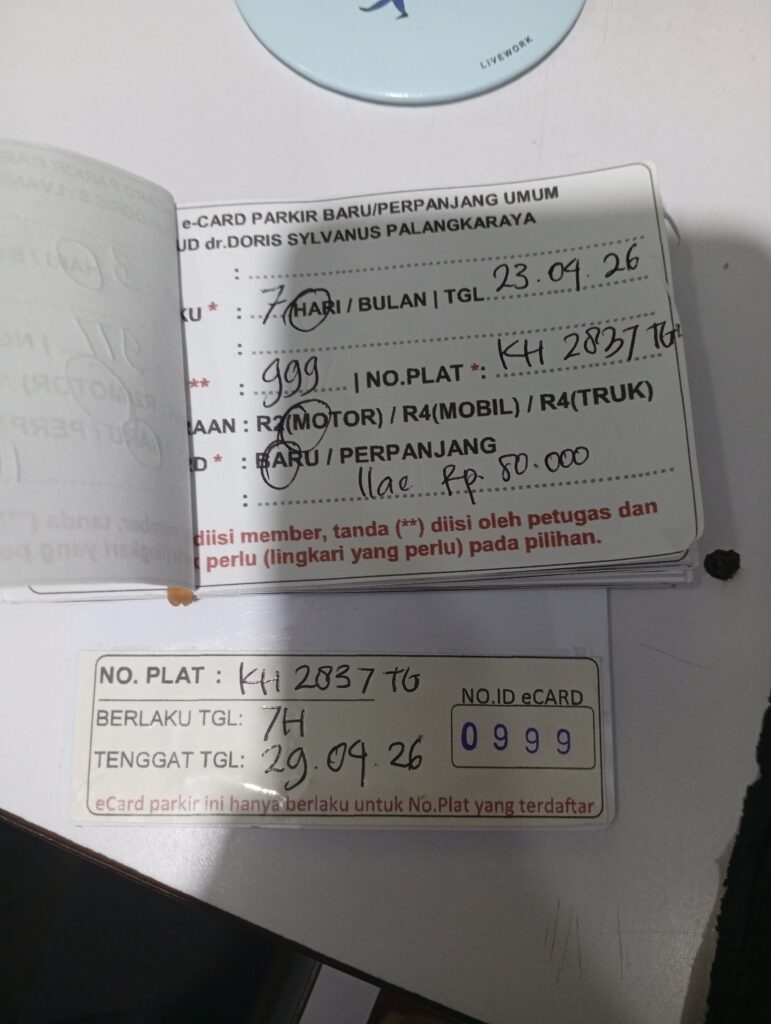 LIVEWORK
e-CARD PARKIR BARU/PERPANJANG UMUM
UD dr.DORIS SYLVANUS PALANGKARAYA
:
KU * : 7 HARI / BULAN | TGL 23.04.26
:
** : 999 | NO.PLAT *: KH 2837 TG
RAAN : R2(MOTOR) / R4(MOBIL) / R4(TRUK)
D * : BARU / PERPANJANG
: Rp. 80.000
diisi member, tanda (**) diisi oleh petugas dan
perlu (lingkari yang perlu) pada pilihan.
NO. PLAT : KH 2837 TG
BERLAKU TGL: 7H
TENGGAT TGL: 29.04.26
NO.ID eCARD
0999
eCard parkir ini hanya berlaku untuk No.Plat yang terdaftar